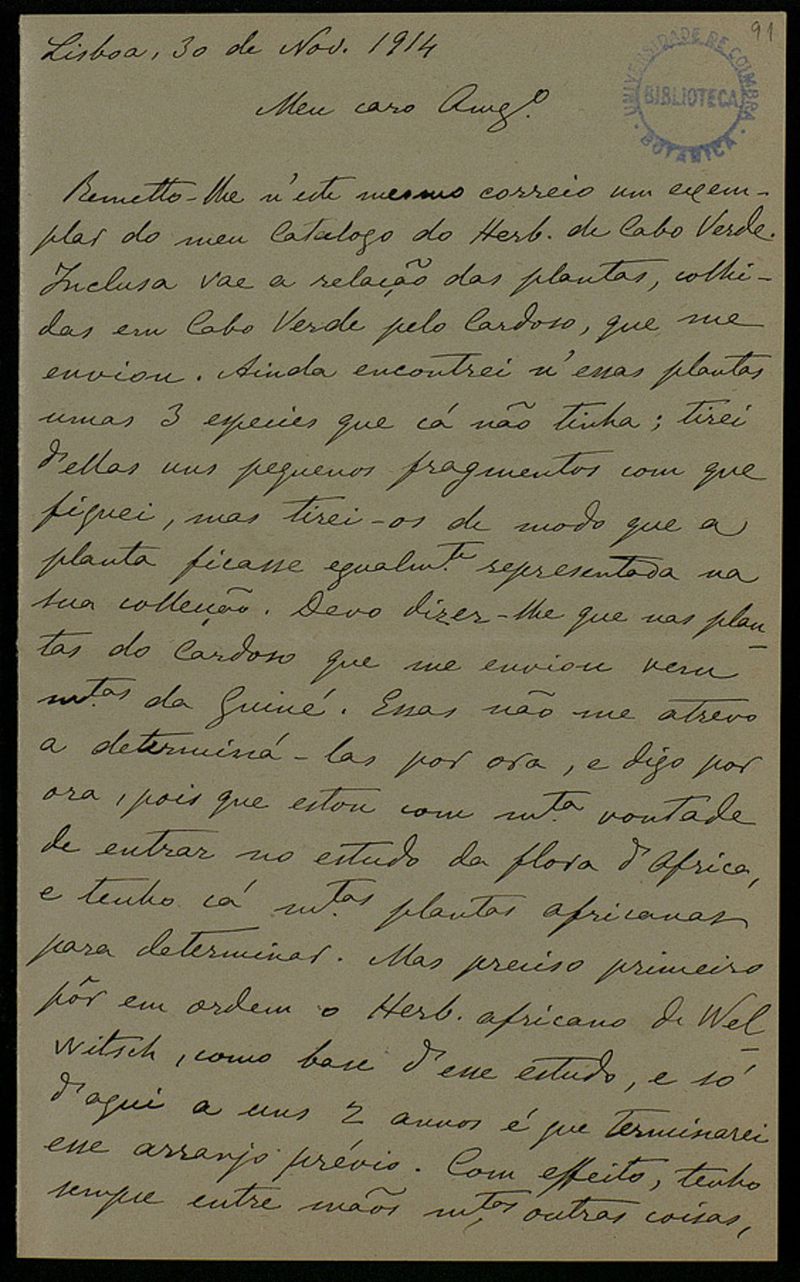 91
UNIVERSIDADE DE COIMBRA
BIBLIOTECA
BOTANICA
Lisboa, 30 de Nov. 1914
Meu caro Amg.º
Remetto-lhe n'este mesmo correio um exem-
plar do meu Catalogo do Herb. de Cabo Verde.
Inclusa vae a relação das plantas, colhi-
das em Cabo Verde pelo Cardoso, que me
enviou. Ainda encontrei n'essas plantas
umas 3 especies que cá não tinha; tirei
d'ellas uns pequenos fragmentos com que
fiquei, mas tirei-os de modo que a
planta ficasse egualm.te representada na
sua collecção. Devo dizer-lhe que nas plan-
tas do Cardoso que me enviou vem
mtas. da Guiné. Essas não me atrevo
a determiná-las por ora, e digo por
ora, pois que estou com mt.a vontade
de entrar no estudo da flora d'Africa,
e tenho cá mt.as plantas africanas
para determinar. Mas preciso primeiro
pôr em ordem o Herb. africano de Wel-
witsch, como base d'esse estudo, e só
d'aqui a uns 2 annos é que terminarei
esse arranjo prévio. Com effeito, tenho
sempre entre mãos mt.as outras coisas,